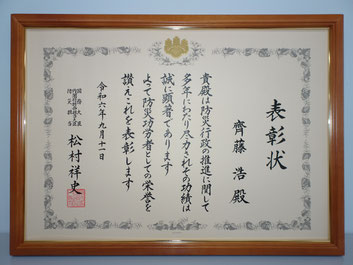 表彰状
齊藤 浩 殿
貴殿は防災行政の推進に関して
多年にわたり尽力されその功績は
誠に顕著であります
よって防災功労者としての栄誉を
讃えこれを表彰します
令和六年九月十一日
松村祥史